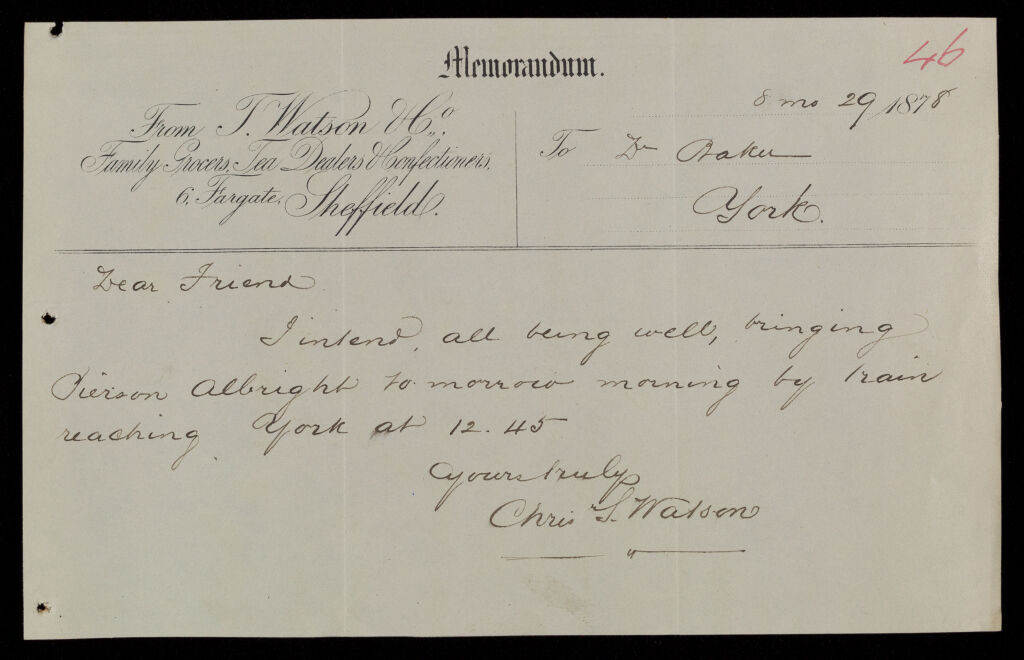 Memorandum.
46
8 mo 29 1878
From T. Watson & Co.,
Family Grocers, Tea Dealers & Confectioners,
6, Fargate, Sheffield.
To Dr Baker
York.
Dear Friend
I intend, all being well, bringing
Pierson Albright to morrow morning by train
reaching York at 12.45
Yours truly
Chris S. Watson